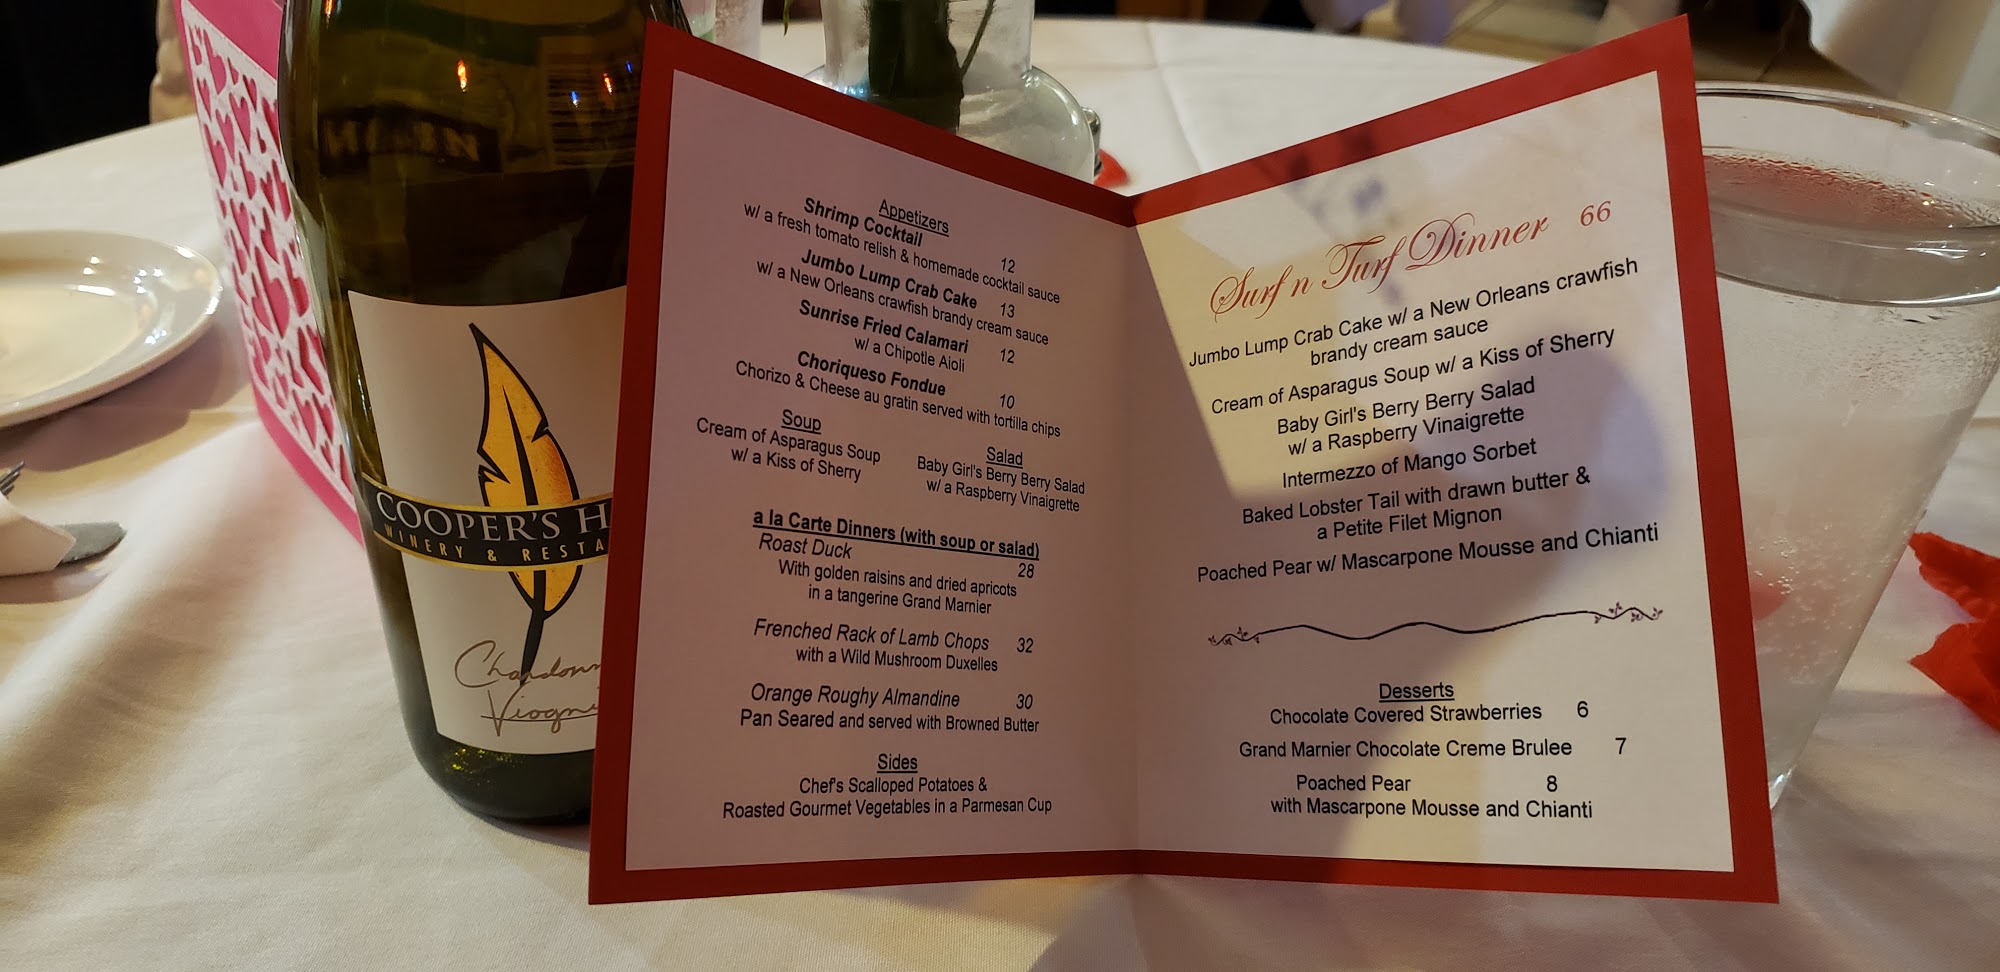 COOPER'S H
WINERY & RESTA
Appetizers
Shrimp Cocktail 12
w/ a fresh tomato relish & homemade cocktail sauce
Jumbo Lump Crab Cake 13
w/ a New Orleans crawfish brandy cream sauce
Sunrise Fried Calamari 12
w/ a Chipotle Aioli
Choriqueso Fondue 10
Chorizo & Cheese au gratin served with tortilla chips
Soup
Cream of Asparagus Soup
w/ a Kiss of Sherry
Salad
Baby Girl's Berry Berry Salad
w/ a Raspberry Vinaigrette
a la Carte Dinners (with soup or salad)
Roast Duck 28
With golden raisins and dried apricots
in a tangerine Grand Marnier
Frenched Rack of Lamb Chops 32
with a Wild Mushroom Duxelles
Orange Roughy Almandine 30
Pan Seared and served with Browned Butter
Sides
Chef's Scalloped Potatoes &
Roasted Gourmet Vegetables in a Parmesan Cup
Surf n Turf Dinner 66
Jumbo Lump Crab Cake w/ a New Orleans crawfish
brandy cream sauce
Cream of Asparagus Soup w/ a Kiss of Sherry
Baby Girl's Berry Berry Salad
w/ a Raspberry Vinaigrette
Intermezzo of Mango Sorbet
Baked Lobster Tail with drawn butter &
a Petite Filet Mignon
Poached Pear w/ Mascarpone Mousse and Chianti
Desserts
Chocolate Covered Strawberries 6
Grand Marnier Chocolate Creme Brulee 7
Poached Pear 8
with Mascarpone Mousse and Chianti